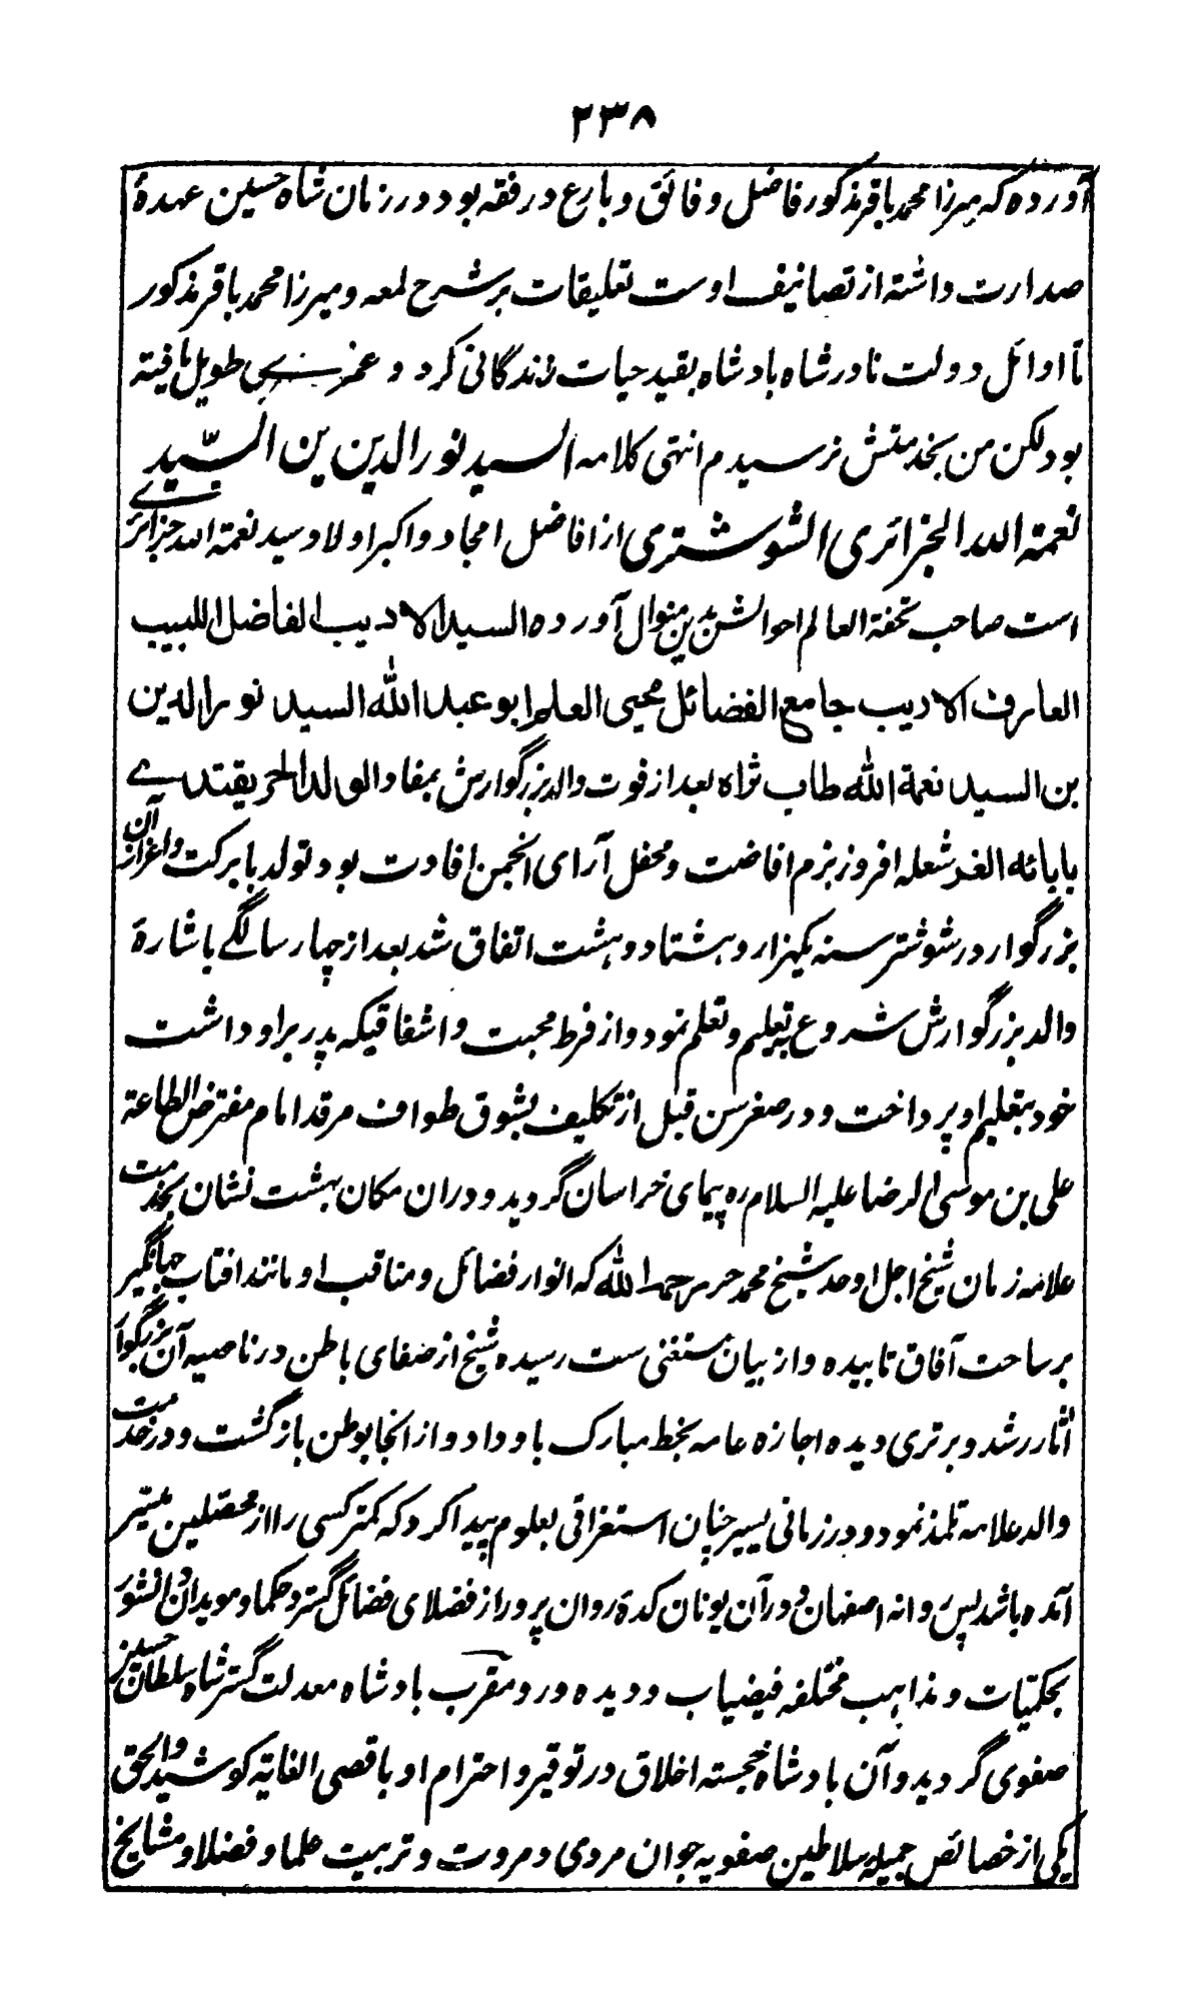 ۲۳۸
آورده که میرزا محمد باقر مذکور فاضل و فائق و بارع در فقه بود در زمان شاه حسین عهدهٔ
صدارت داشته از تصانیف اوست تعلیقات بر شرح لمعه و میرزا محمد باقر مذکور
تا اوائل دولت نادر شاه بادشاه بقید حیات زندگانی کرد و عمری طویل یافته
بود لکن من بخدمتش نرسیدم انتهی کلامه السید نور الدین بن السّید
نعمة الله الجزائری الشوشتری از افاضل امجاد و اکبر اولاد سید نعمة الله جزائری
است صاحب تحفة العالم احوالش بدین منوال آورده السید الادیب الفاضل اللبیب
العارف الادیب جامع الفضائل محیی العلم ابو عبد الله السید نور الدین
بن السید نعمة الله طاب ثراه بعد از فوت والد بزرگوارش بمفاد الولد الحر یقتدے
بابائه الغر شعله افروز بزم افاضت و محفل آرای انجمن افادت بود تولد با برکت و اعزاز آن
بزرگوار در شوشتر سنه یکهزار و هشتاد و هشت اتفاق شد بعد از چهار سالگے باشارهٔ
والد بزرگوارش شروع بتعلیم و تعلم نمود و از فرط محبت و اشفاقیکه پدر بر او داشت
خود بتعلیم او پرداخت و در صغر سن قبل از تکلیف بشوق طواف مرقد امام مفترض الطاعة
علی بن موسی الرضا علیه السلام ره پیمای خراسان گردید و دران مکان بهشت نشان بخدمت
علامه زمان شیخ اجل اوحد شیخ محمد حر رحمه الله که انوار فضائل و مناقب او مانند افتاب جهانگیر
بر ساحت آفاق تابیده و از بیان مستغنی ست رسیده شیخ از صفای باطن در ناصیه آن بزرگوار
اثار رشد و برتری دیده اجازه عامه بخط مبارک باو داد و از انجا بوطن بازگشت و در خدمت
والد علامه تلمذ نمود و در زمانی یسیر چنان استغراقی بعلوم پیدا کرد که کمتر کسی را از محصلین میسر
آمده باشد پس روانه اصفهان و در آن یونان کدهٔ روان پرور از فضلای فضائل گستر و حکما و موبدان دانشور
بحکمیات و مذاهب مختلفه فیضیاب و دیده ور و مقرب بادشاه معدلت گستر شاه سلطان حسین
صفوی گردید و آن بادشاه خجسته اخلاق در توقیر و احترام او باقصی الغایة کوشید والحق
یکی از خصائص جمیله سلاطین صفویه جوان مردی و مروت و تربیت علما و فضلا و مشایخ